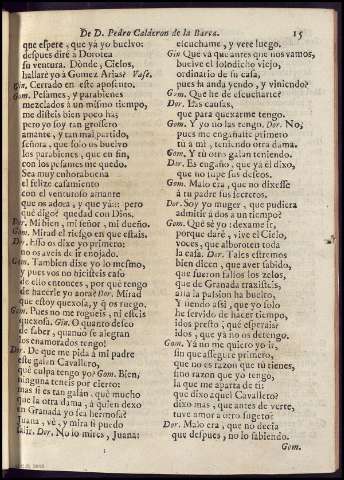 De D. Pedro Calderon de la Barca. 15
que espere, que yà yo buelvo:
despues diré à Dorotea
su ventura. Dònde, Cielos,
hallaré yo à Gomez Arias? Vase.
Gin. Cerrado en este aposento.
Gom. Pesames, y parabienes
mezclados à un mismo tiempo,
me disteis bien poco hà;
pero yo soy tan grossero
amante, y tan mal partido,
señora, que solo os buelvo
los parabienes, que en fin,
con los pesames me quedo.
Sea muy enhorabuena
el felize casamiento
con el venturoso amante
que os adora, y que yà::: pero
què digo? quedad con Dios.
Dor. Mi bien, mi señor, mi dueño.
Gom. Mirad el riesgo en que estais.
Dor. Esso os dixe yo primero:
no os aveis de ir enojado.
Gom. Tambien dixe yo lo mesmo,
y pues vos no hizisteis caso
de ello entonces, por què tengo
de hacerle yo aora? Dor. Mirad
que estoy quexosa, y os ruego.
Gom. Pues no me rogueis, ni esteis
quexosa. Gin. O quanto deseo
de saber, quando se alegran
los enamorados tengo!
Dor. De que me pida à mi padre
este galan Cavallero,
què culpa tengo yo? Gom. Bien,
ninguna teneis por cierto:
mas si es tan galàn, què mucho
que la otra dama, à quien dexo
en Granada yo sea hermosa?
Juana, vè, y mira si puedo
salir. Dor. No lo mires, Juana:
escuchame, y vete luego.
Gin. Què và que antes que nos vamos,
buelve el solodicho viejo,
ordinario de su casa,
pues hà anda yendo, y viniendo?
Gom. Què he de escucharte?
Dor. Las causas,
que para quexarme tengo.
Gom. Y yo no las tengo. Dor. No;
pues me engañaste primero
tù à mi, teniendo otra dama.
Gom. Y tù otro galan teniendo.
Dor. Es engaño, que yà èl dixo,
que no supe sus deseos.
Gom. Malo era, que no dixesse
à tu padre sus secretos.
Dor. Soy yo muger, que pudiera
admitir à dos à un tiempo?
Gom. Què sè yo: dexame ir,
porque daré, vive el Cielo,
voces, que alboroten toda
la casa. Dor. Tales estremos
bien dicen, que aver sabido,
que fueron falsos los zelos,
que de Granada traxisteis,
alla la passion ha buelto,
Y siendo assi, que yo solo
he servido de hacer tiempo,
idos presto, què esperais?
idos, que yà no os detengo.
Gom. Yà no me quiero yo ir,
sin que assegure primero,
que no es razon que tù tienes,
sino razon que yo tengo,
la que me aparta de ti:
què dixo aquel Cavallero?
dixo mas, que antes de verte,
tuve amor à otro sugeto?
Dor. Malo era, que no decia
que despues, no lo sabiendo.
Gom.